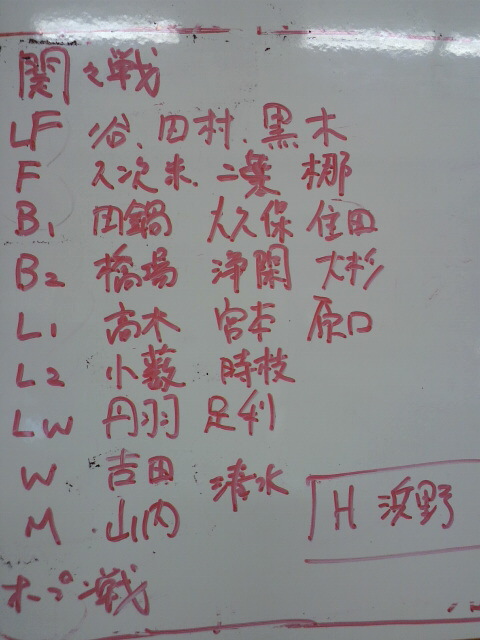 関々戦
LF 谷、田村、黒木
F 久次来、二乗 梛
B1 田鍋 大久保 住田
B2 橋場 浄閑 大杉
L1 高木 宮本 原口
L2 小薮 時枝
LW 丹羽 足利
W 吉田 清水
M 山内
H 浜野
オープン戦